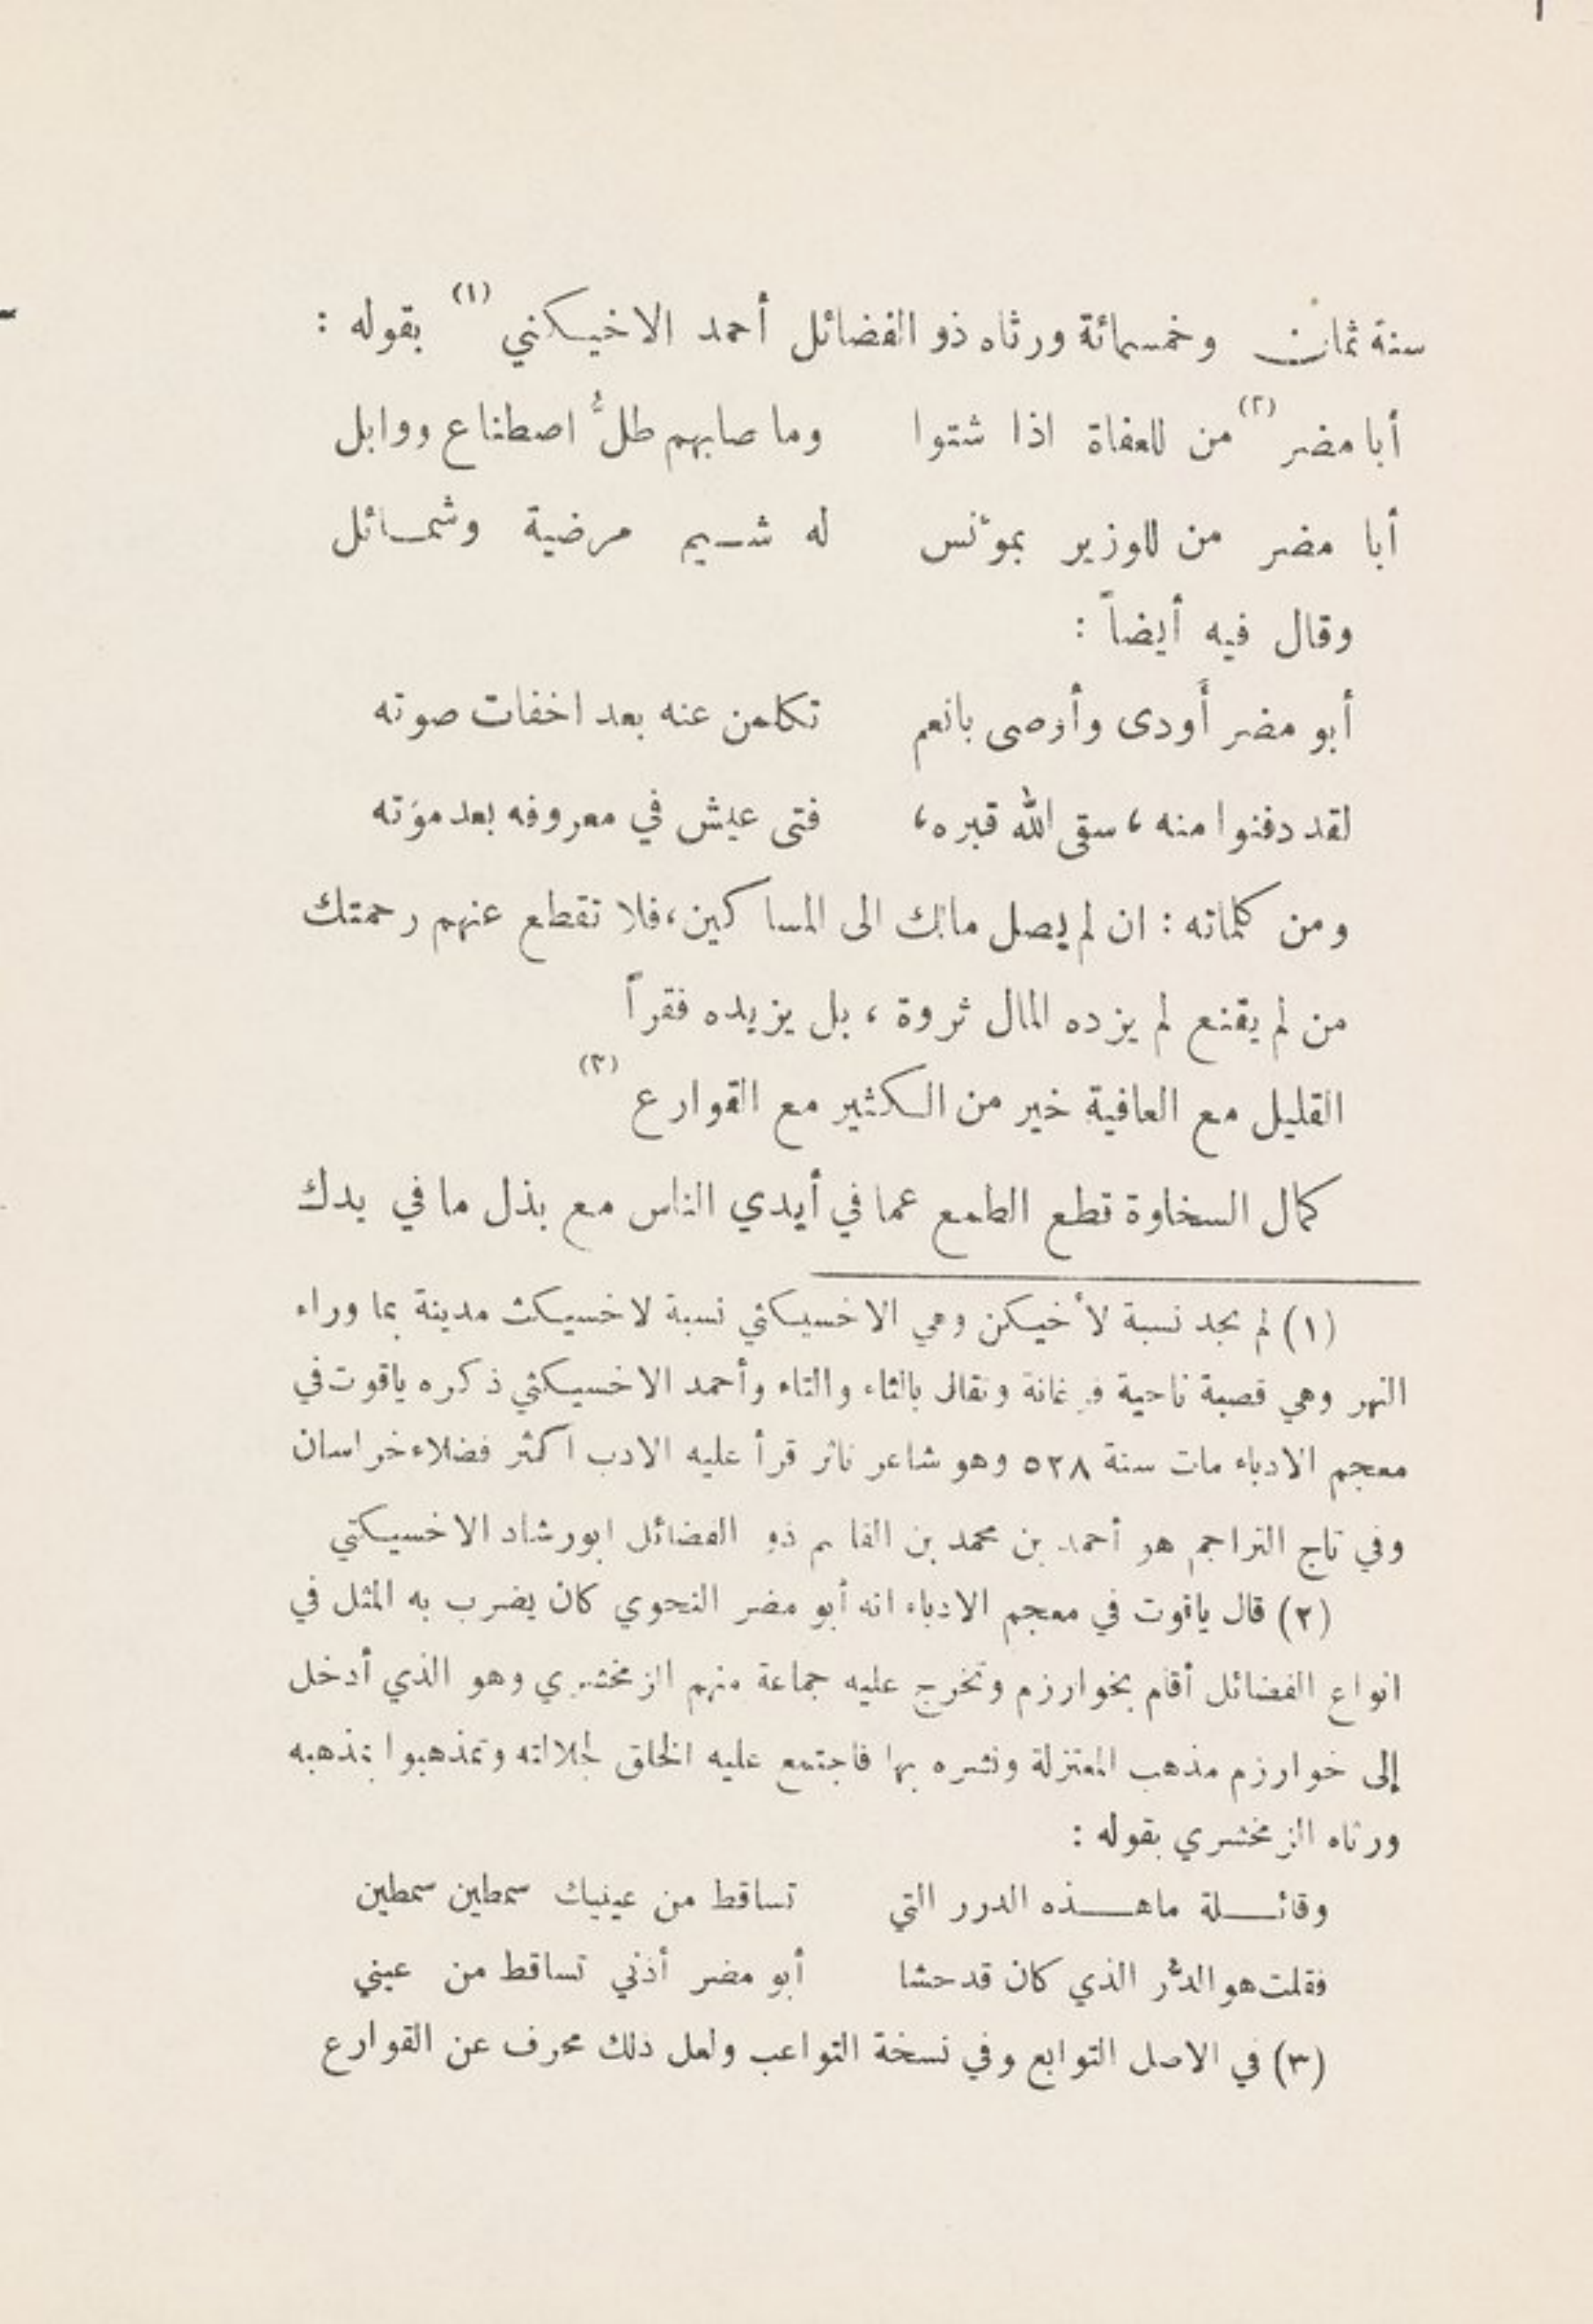 سنة ثمان وخمسمائة ورثاه ذو الفضائل أحمد الاخيسكني (١) بقوله :
أبا مضر (٢) من للعفاة اذا شتوا وما صابهم طلُّ اصطناع ووابل
أبا مضر من للوزير بموٴنس له شيم مرضية وشمائل
وقال فيه أيضاً :
أبو مضر أَودى وأوصى بانعم تكلمن عنه بعد اخفات صوته
لقد دفنوا منه ، سقى الله قبره ، فتى عيش في معروفه بعد موَته
ومن كلماته : ان لم يصل مالك الى المساكين ، فلا تقطع عنهم رحمتك
من لم يقنع لم يزده المال ثروة ، بل يزيده فقراً
القليل مع العافية خير من الكثير مع القوارع (٣)
كمال السخاوة قطع الطمع عما في أيدي الناس مع بذل ما في يدك
(١) لم نجد نسبة لأخيسكن وهي الاخسيكثي نسبة لاخسيكث مدينة بما وراء
النهر وهي قصبة ناحية فرغانة وتقال بالثاء والتاء وأحمد الاخسيكثي ذكره ياقوت في
معجم الادباء مات سنة ٥٢٨ وهو شاعر ناثر قرأ عليه الادب اكثر فضلاء خراسان
وفي تاج التراجم هو أحمد بن محمد بن القاسم ذو الفضائل ابو رشاد الاخسيكتي
(٢) قال ياقوت في معجم الادباء انه أبو مضر النحوي كان يضرب به المثل في
انواع الفضائل أقام بخوارزم وتخرج عليه جماعة منهم الزمخشري وهو الذي أدخل
إلى خوارزم مذهب المعتزلة ونشره بها فاجتمع عليه الخلق لجلالته وتمذهبوا بمذهبه
ورثاه الزمخشري بقوله :
وقائلة ما هذه الدرر التي تساقط من عينيك سمطين سمطين
فقلت هو الدُّر الذي كان قد حشا أبو مضر أذني تساقط من عيني
(٣) في الاصل التوابع وفي نسخة التواعب ولعل ذلك محرف عن القوارع